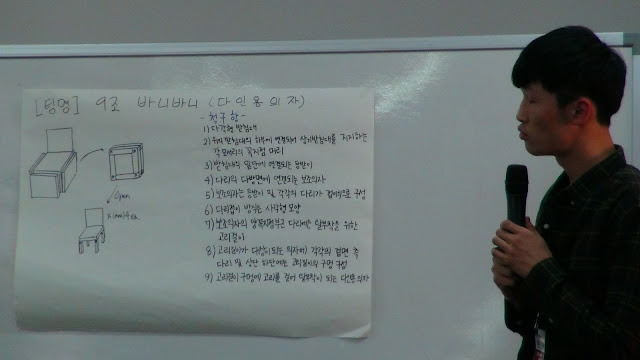 [팅명] 9조 바니바니 (다인용의자)
- 청구항 -
1) 다각형 받침대
2) 받침대의 하부에 연결되어 상기받침대를 지지하는
각 모서리의 꼭지점 다리
3) 받침대의 일단에 연결되는 등받이
4) 다리의 다방면에 연결되는 보조의자
5) 보조의자는 등받이 및 각각의 다리가 접이식으로 구성
6) 다리 이 받치는 사각형 모양
7) 보조의자의 양 다리에는 탈부착을 위한
고리걸이
8) 고리걸이가 다리 되는 의자에 각각의 옆면 측
다리 및 상단 하단에는 고리걸이의 구멍 구성
9) 고리걸이 구멍에 고리를 걸어 탈부착이 되는 다인용의자
open